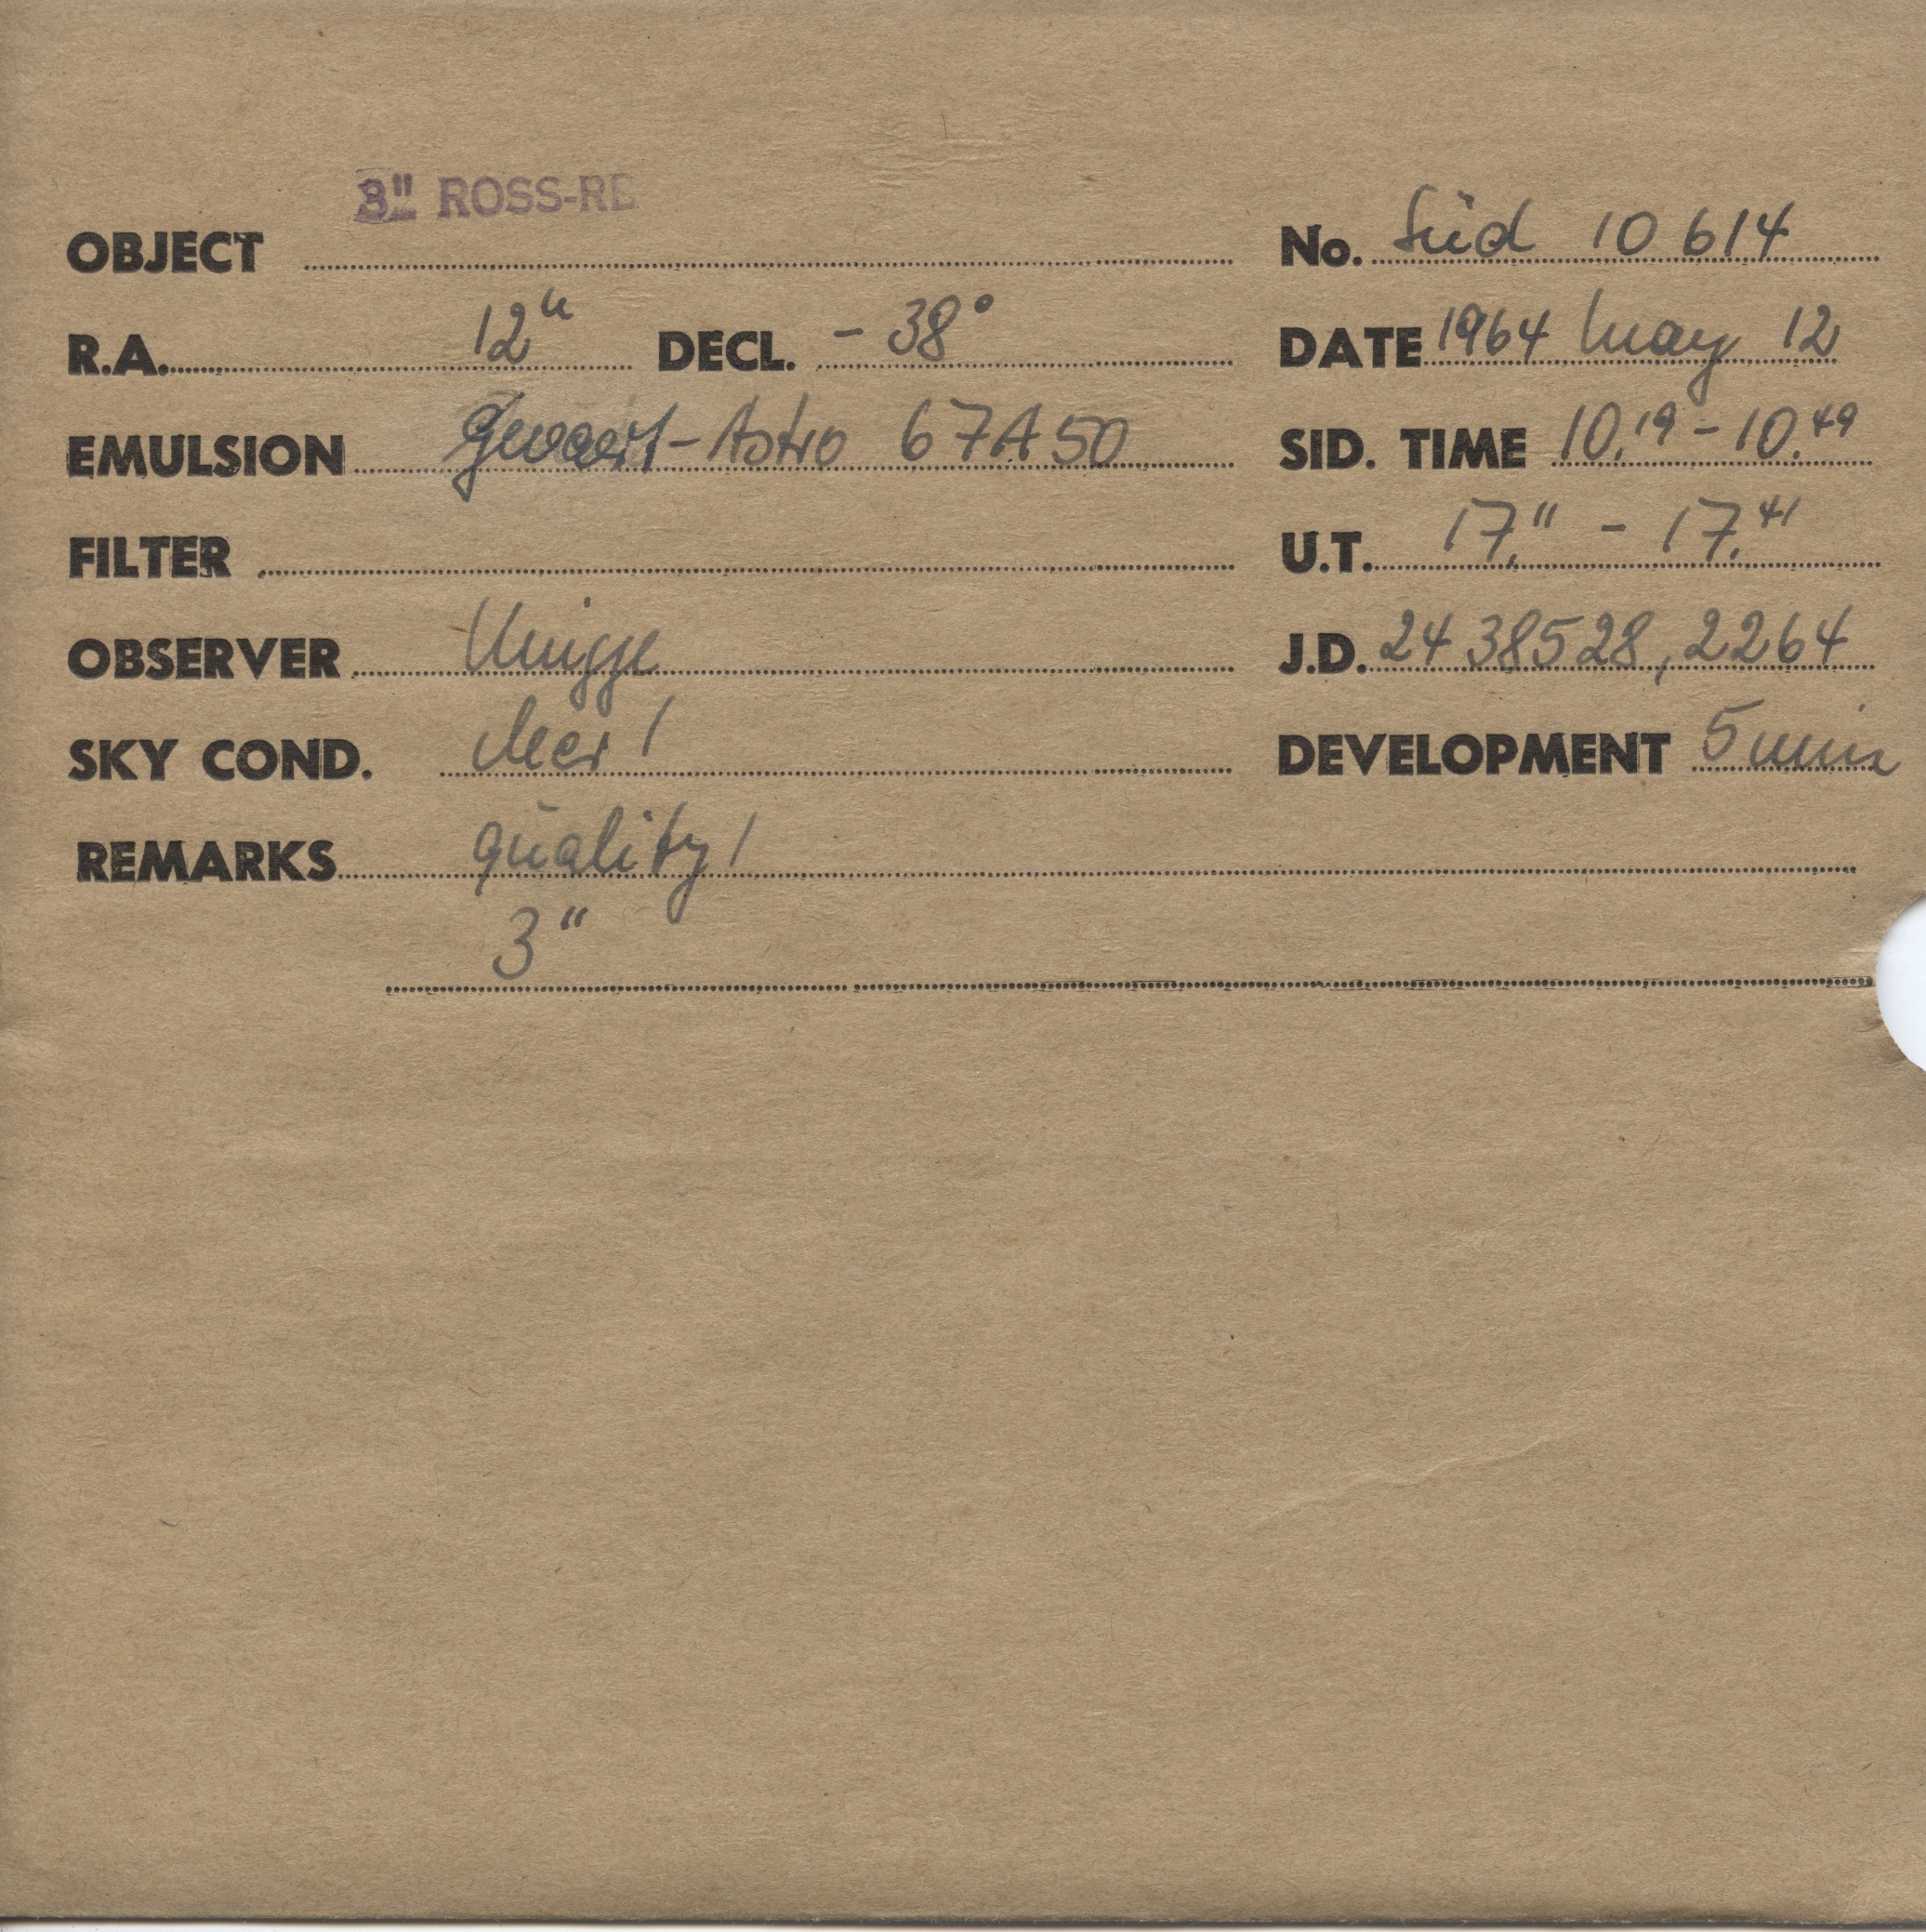 3" ROSS-RE
OBJECT No. Süd 10 614
R.A. 12h DECL. - 38° DATE 1964 May 12
EMULSION Gevaert-Astro 67A50 SID. TIME 10.19 - 10.49
FILTER U.T. 17.11 - 17.41
OBSERVER Knigge J.D. 24 38528,2264
SKY COND. clear! DEVELOPMENT 5 min
REMARKS quality!
3"